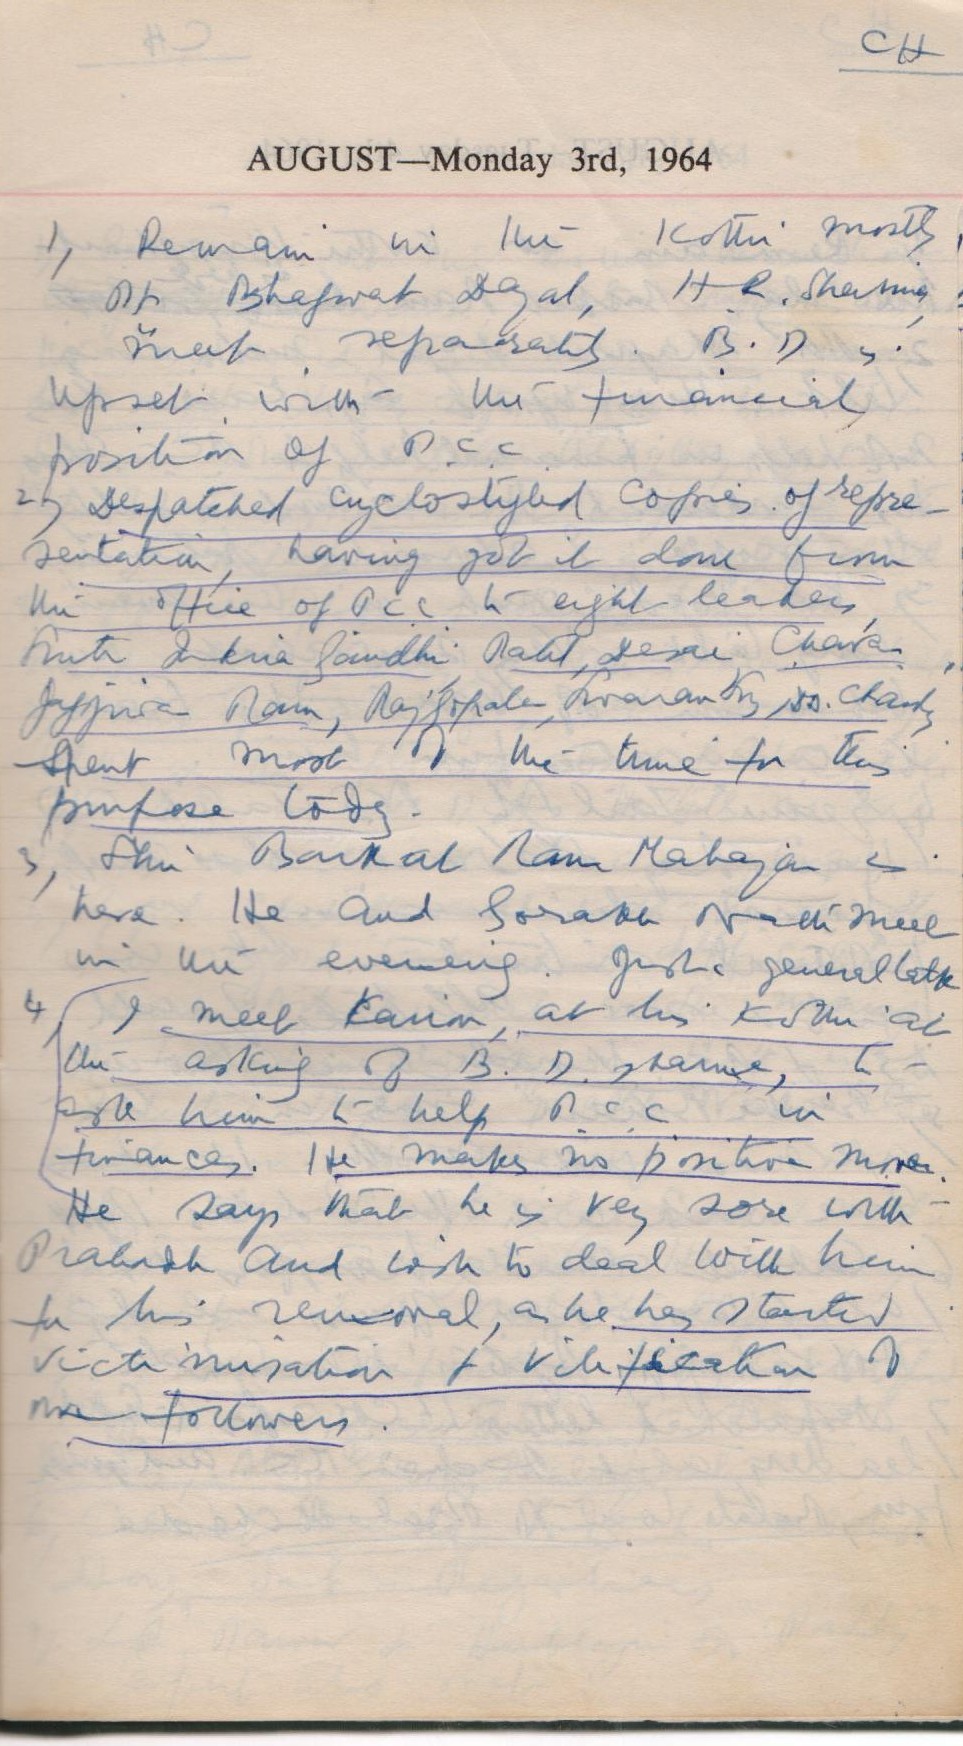 CH
AUGUST—Monday 3rd, 1964
1, Remain in the Kothi mostly
Pt Bhagwat Dayal, H R. Sharma,
meet separately. B. D is
upset with the financial
position of P.C.C.
2, Despatched cyclostyled copies of repre-
sentation, having got it done from
the office of PCC to eight leaders,
Indira Gandhi Patil, Desai, Chavan
Jagjiwan Ram, Rajgopalan, Swaran Chady
Spent most of the time for this
purpose today.
3, Shri Barkat Ram Mahajan is
here. He and Gorakh Nath meet
in the evening. Just general talk
4, I meet Kairon, at his Kothi at
the asking of B. D. Sharma, to
ask him to help P.C.C in
finances. He makes no positive move.
He says that he is very sore with
Prabodh and wish to deal with him
for his removal, as he has started
victimisation & vilification of
followers.